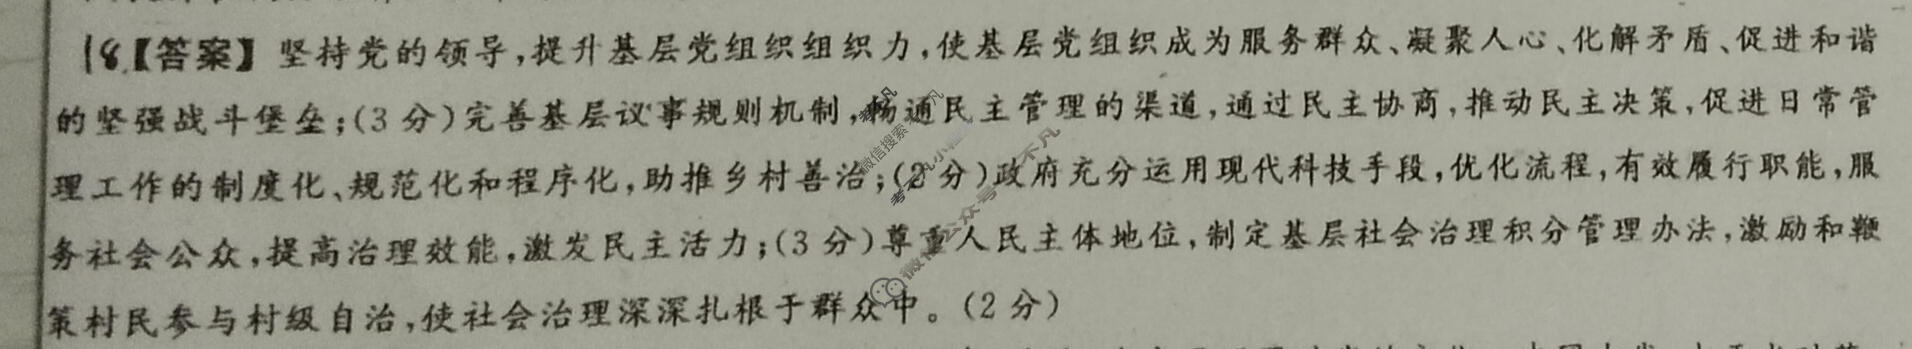 18.【答案】坚持党的领导,提升基层党组织组织力,使基层党组织成为服务群众、凝聚人心、化解矛盾、促进和谐
的坚强战斗堡垒;(3分)完善基层议事规则机制,畅通民主管理的渠道,通过民主协商,推动民主决策,促进日常管
理工作的制度化、规范化和程序化,助推乡村善治;(2分)政府充分运用现代科技手段,优化流程,有效履行职能,服
务社会公众,提高治理效能,激发民主活力;(3分)尊重人民主体地位,制定基层社会治理积分管理办法,激励和鞭
策村民参与村级自治,使社会治理深深扎根于群众中。(2分)